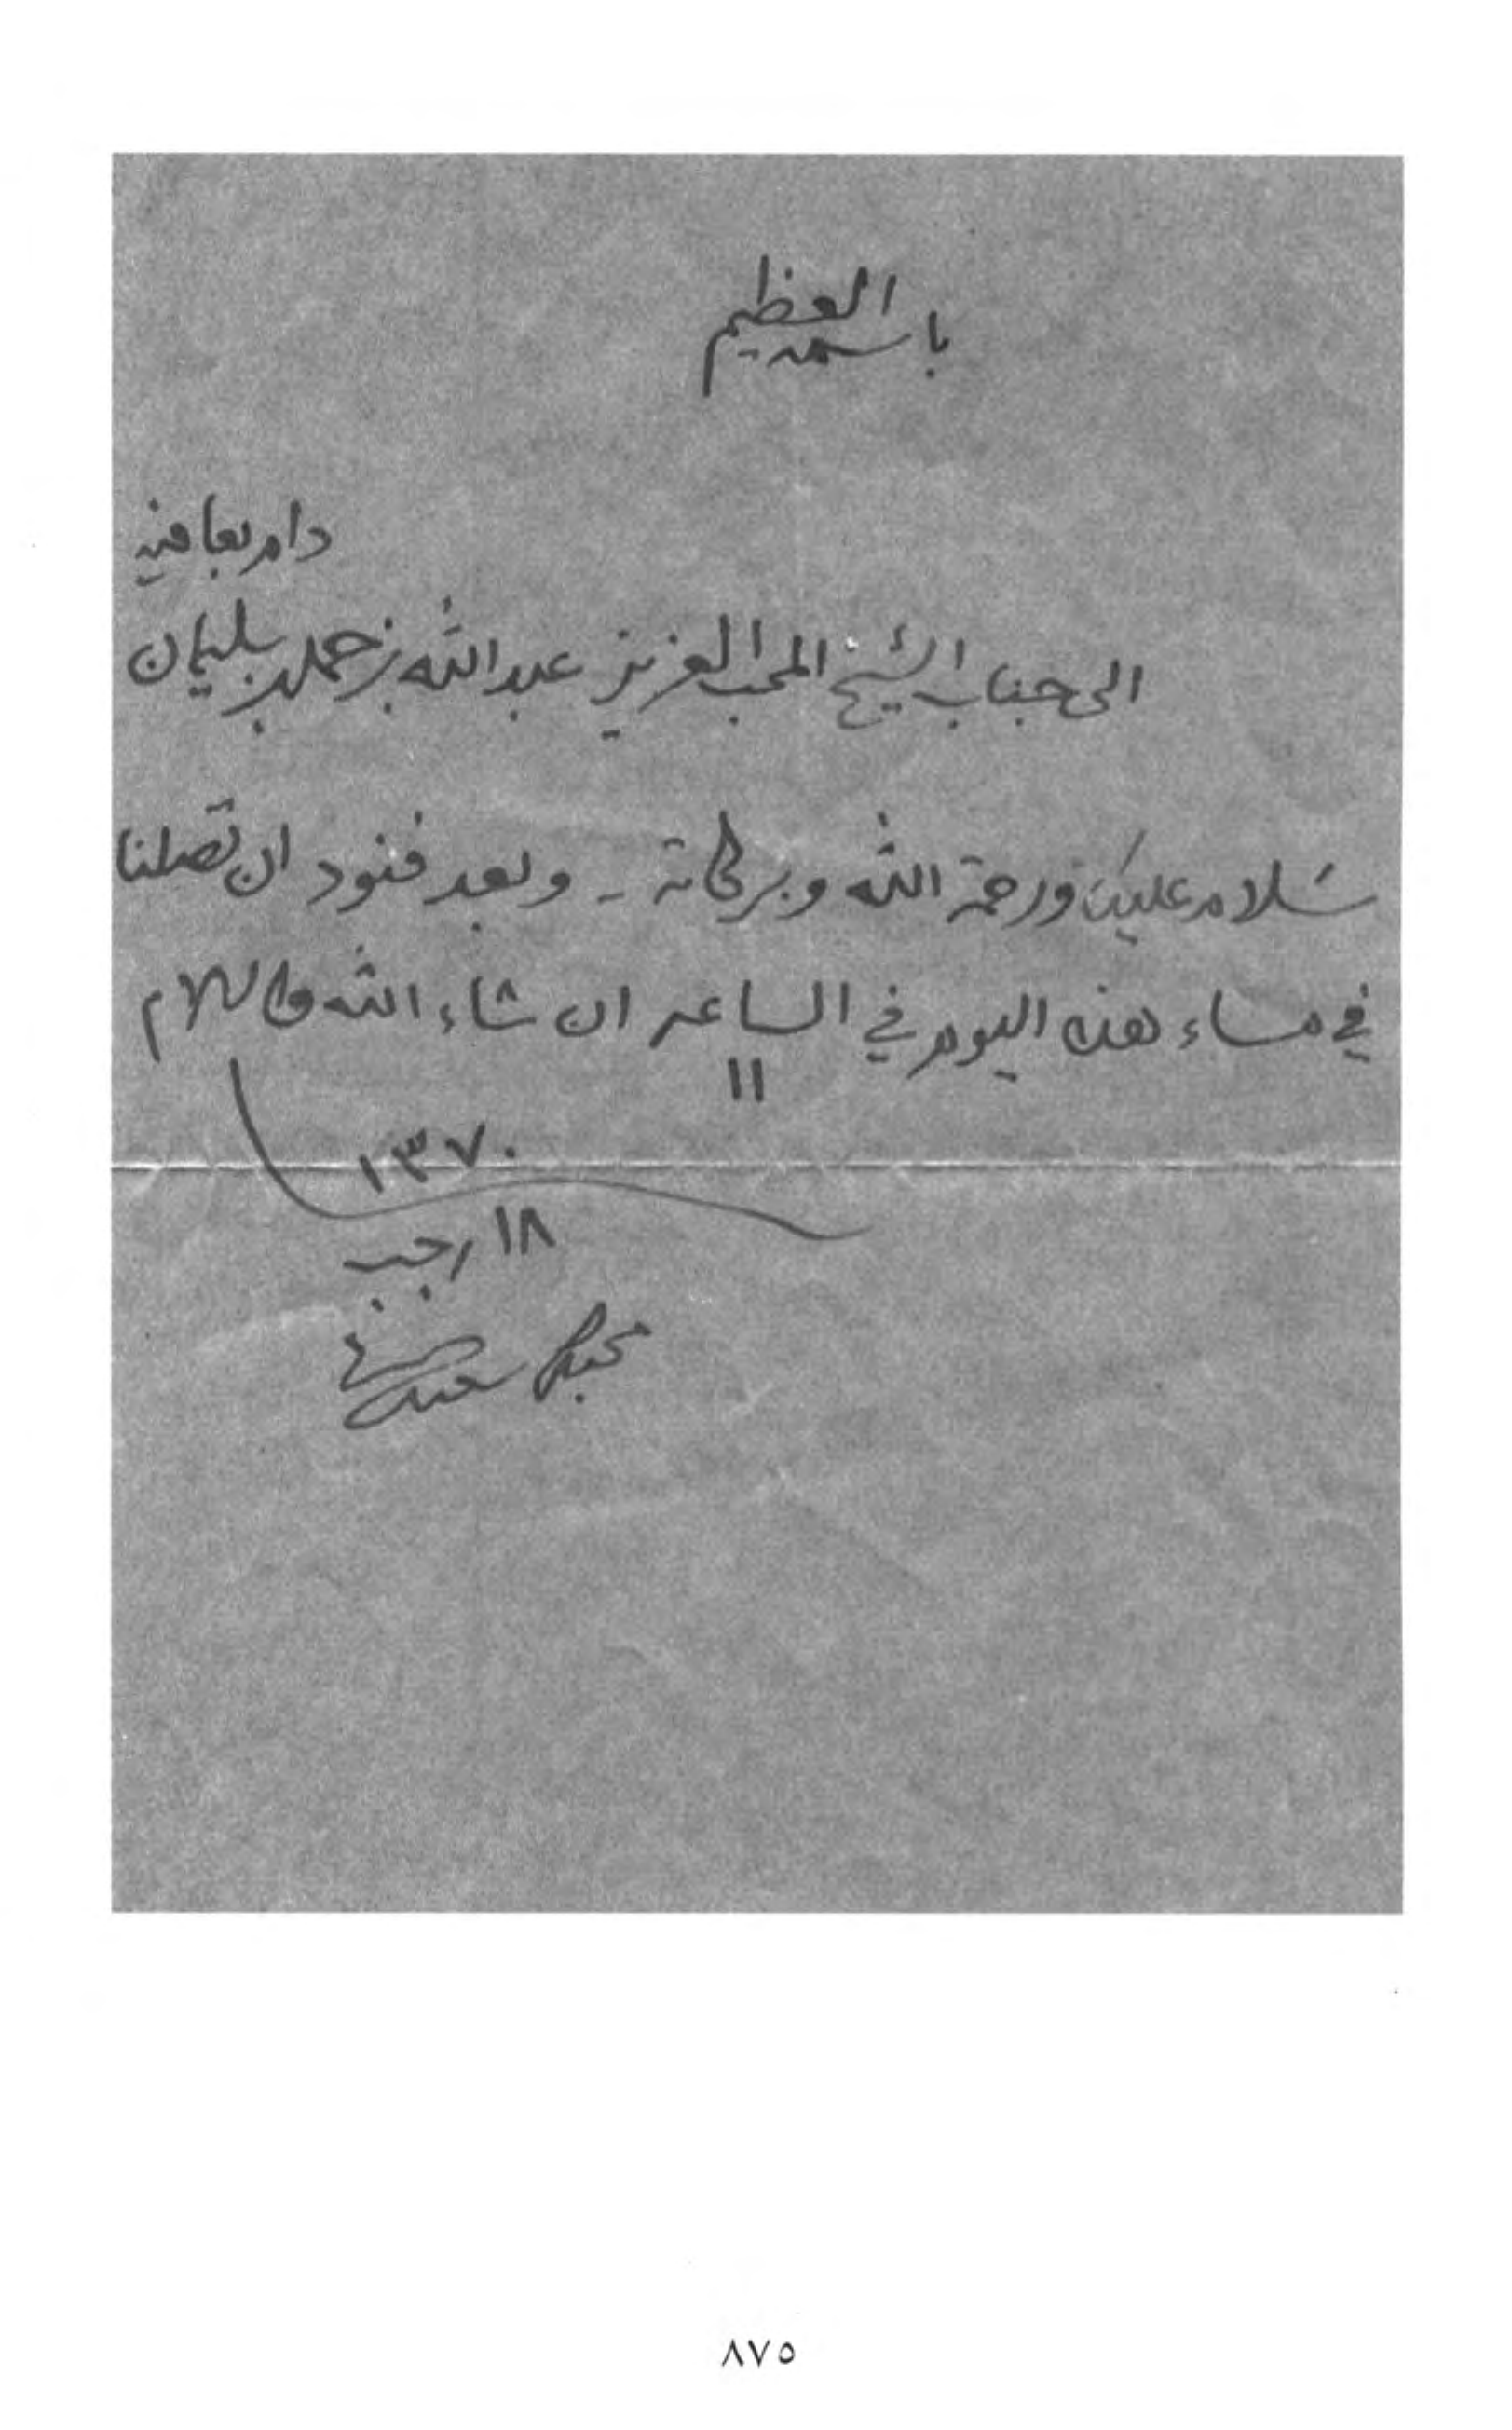 باسمه العظيم
دام بعافيه
الى جناب الشيخ المحب العزيز عبدالله بن حمد بن سليمان
سلام عليك ورحمة الله وبركاته - وبعد فنود ان تصلنا
في مساء هذه اليوم في الساعه ١١ ان شاء الله والسلام
١٣٧٠
١٨ رجب
محبك
٨٧٥